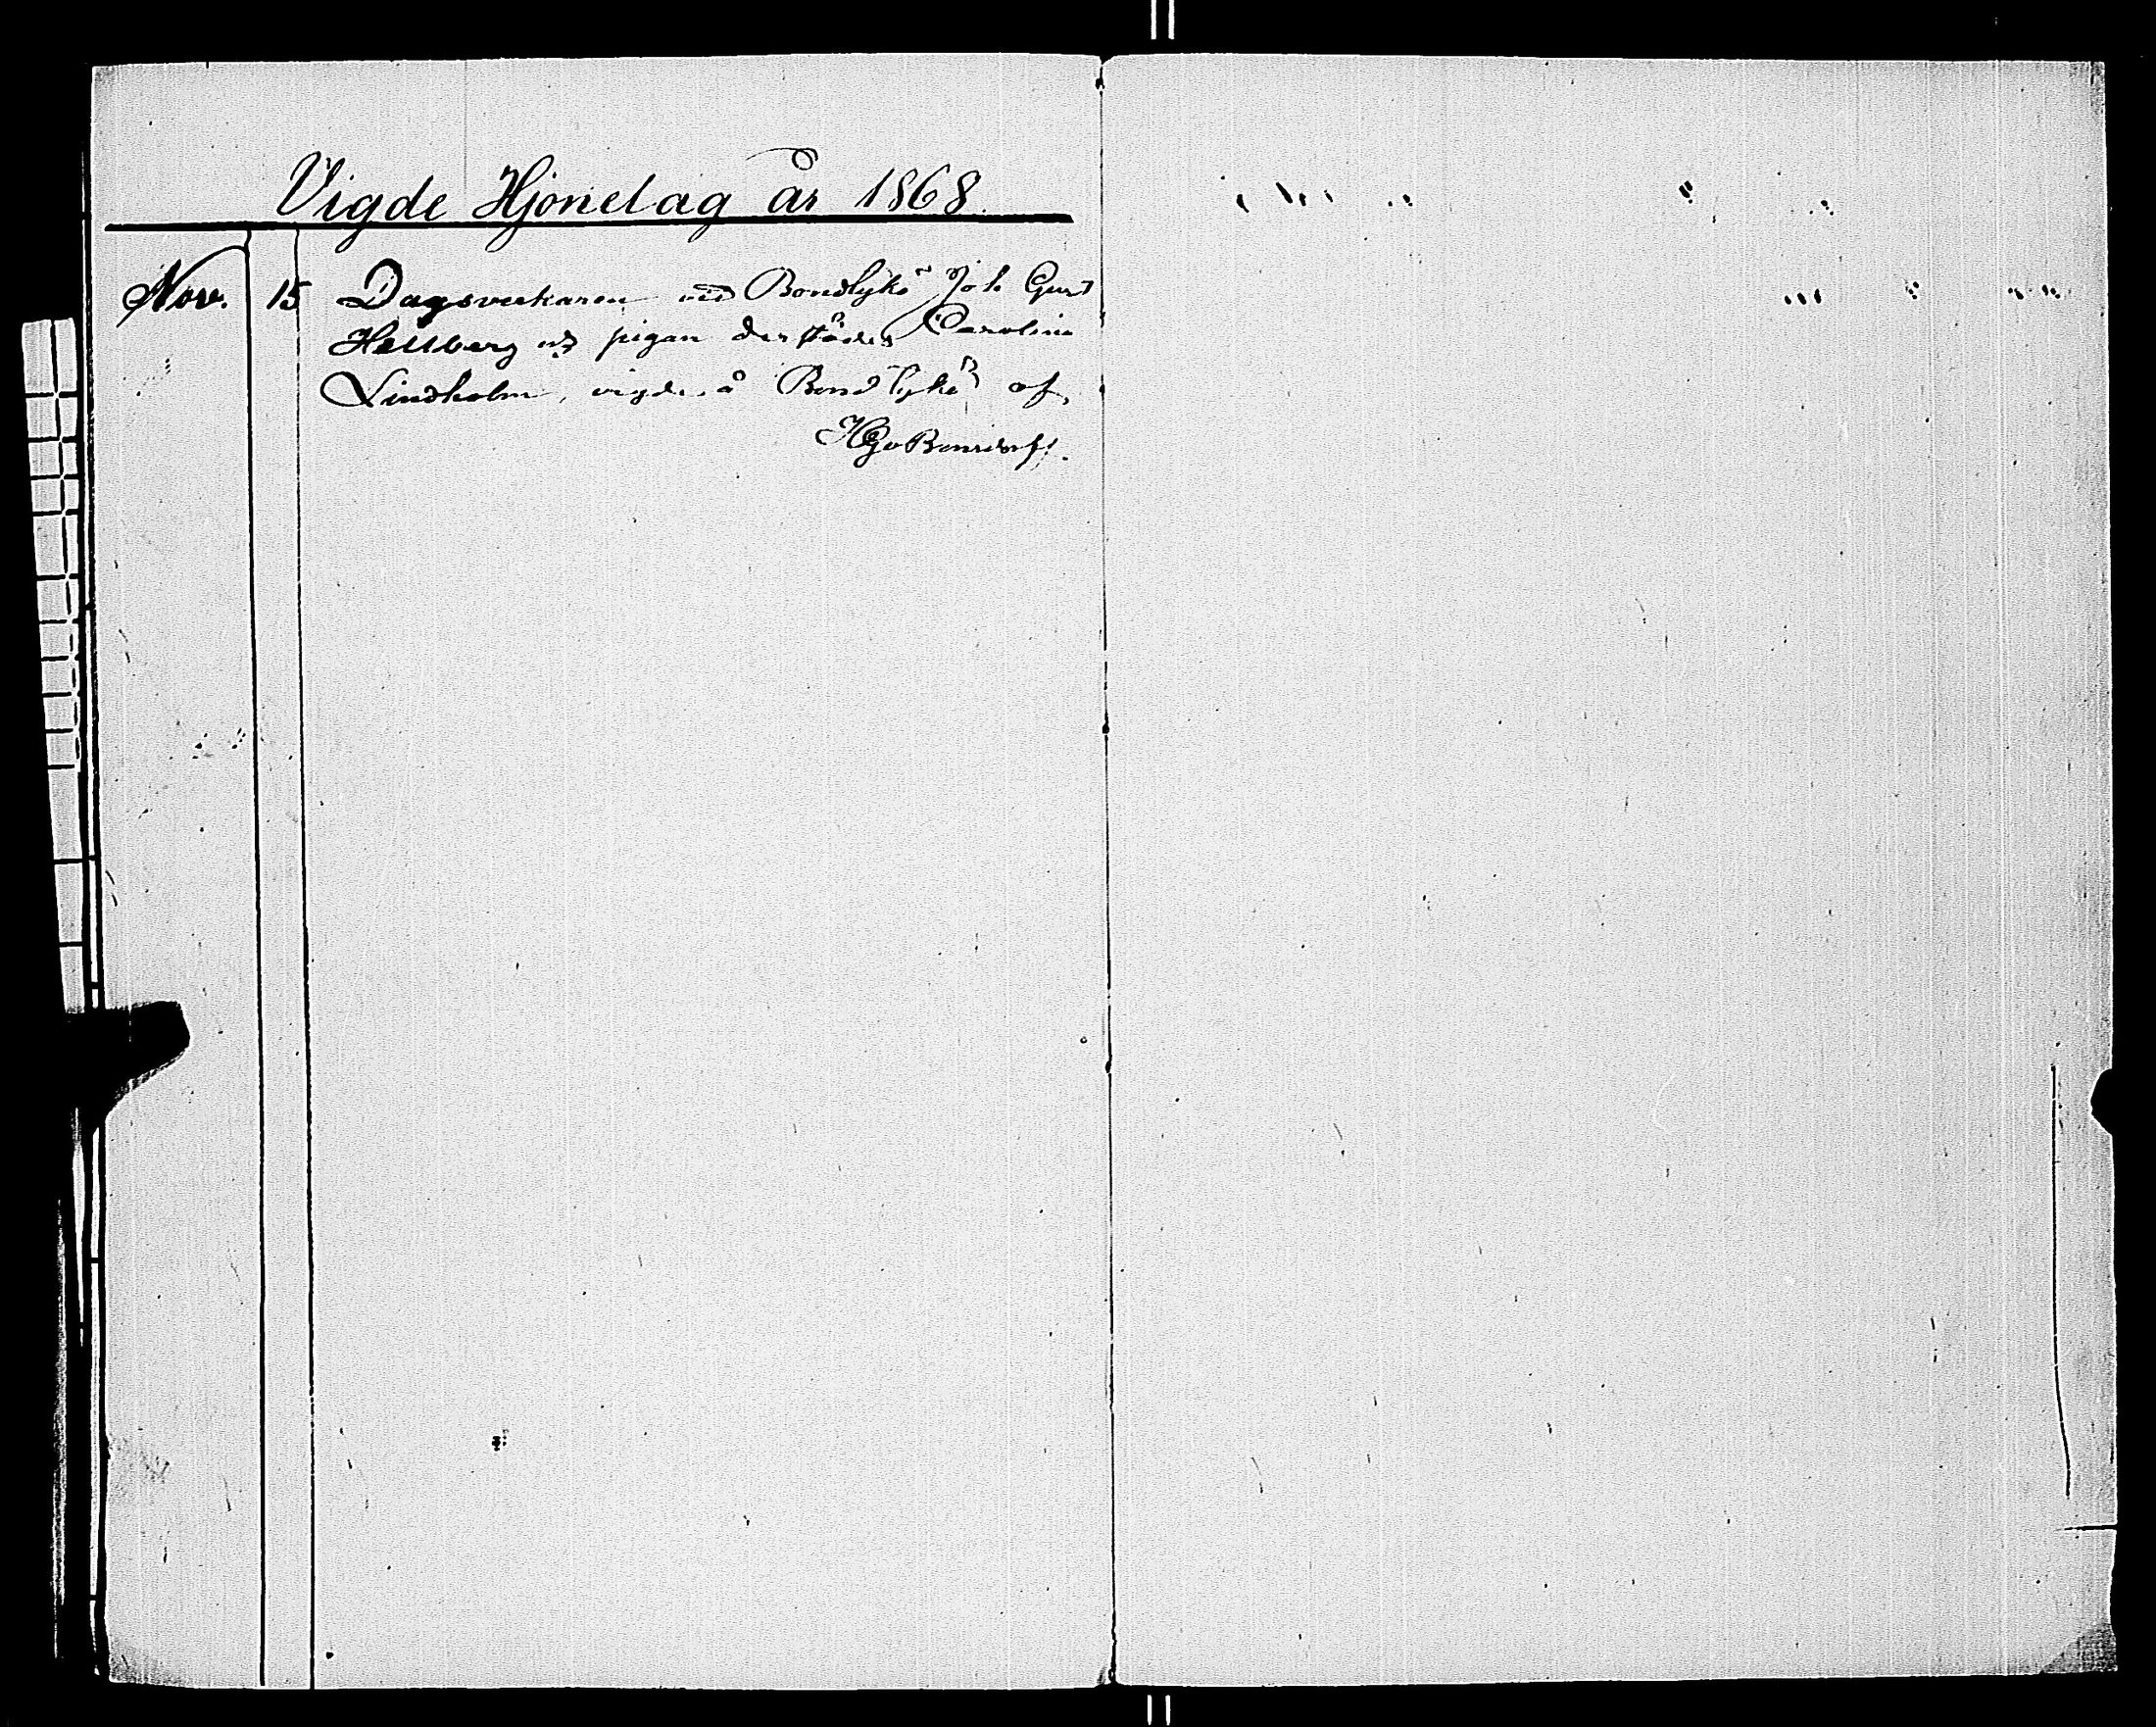 Vigde Hjonelag år 1868.
Nov. 15 Dagsverkaren vid Bondlykå Joh Gust
Hellberg och pigan derstädes Carolina
Lindholm, vigde å Bondlykå af
Bonsdorff.